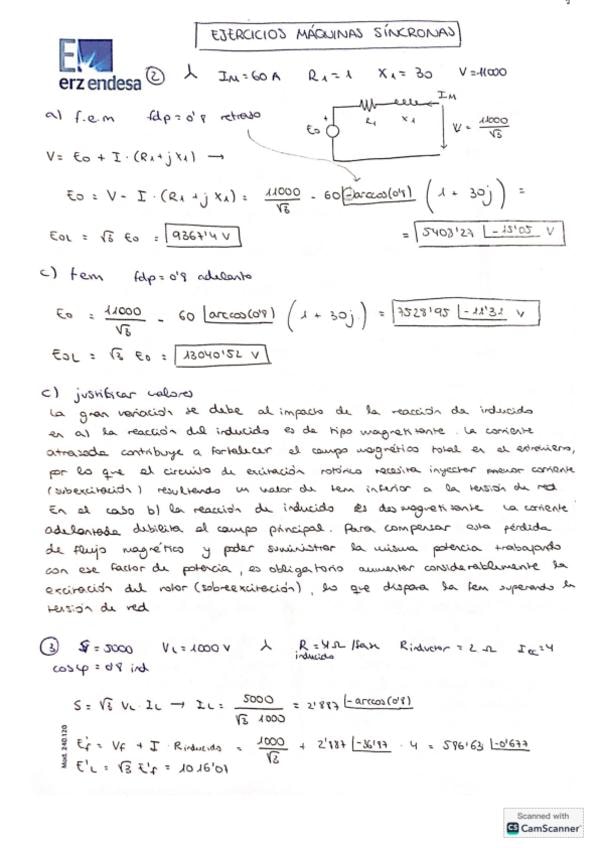 EJERCICIOS MÁQUINAS SÍNCRONAS
erz endesa
② ⅄ IM = 60 A R1 = 1 X1 = 30 V = 11000
a) f.e.m fdp = 0'8 retraso
IM
Eo R1 X1 V = 11000/√3
V = Eo + I · (R1 + j X1) →
Eo = V - I · (R1 + j X1) = 11000/√3 - 60 |-arccos(0'8) (1 + 30j) =
EOL = √3 Eo = 9367'4 V = 5408'27 |-15'05 V
c) fem fdp = 0'8 adelanto
Eo = 11000/√3 - 60 |arccos(0'8) (1 + 30j) = 7528'95 |-11'31 V
EOL = √3 Eo = 13040'52 V
c) justificar valores
La gran variación se debe al impacto de la reacción de inducido
en a) la reacción del inducido es de tipo magnetizante. La corriente
atrasada contribuye a fortalecer el campo magnético total en el entrehierro,
por lo que el circuito de excitación rotórico necesita inyectar menor corriente
(subexcitación) resultando un valor de fem inferior a la tensión de red
En el caso b) la reacción de inducido es desmagnetizante la corriente
adelantada debilita el campo principal. Para compensar esta pérdida
de flujo magnético y poder suministrar la misma potencia trabajando
con ese factor de potencia, es obligatorio aumentar considerablemente la
excitación del rotor (sobreexcitación), lo que dispara la fem superando la
tensión de red
③ S = 5000 VL = 1000 V ⅄ R = 4 Ω /fase Rinductor = 2 Ω
inducido
cos φ = 0'8 ind
S = √3 VL · IL → IL = 5000/√3 1000 = 2'887 |-arccos(0'8)
E'f = Vf + I · Rinducido = 1000/√3 + 2'887 |-36'87 · 4 = 586'63 |-0'677
E'L = √3 E'f = 1016'07
Mod. 240.120
Scanned with
CS CamScanner